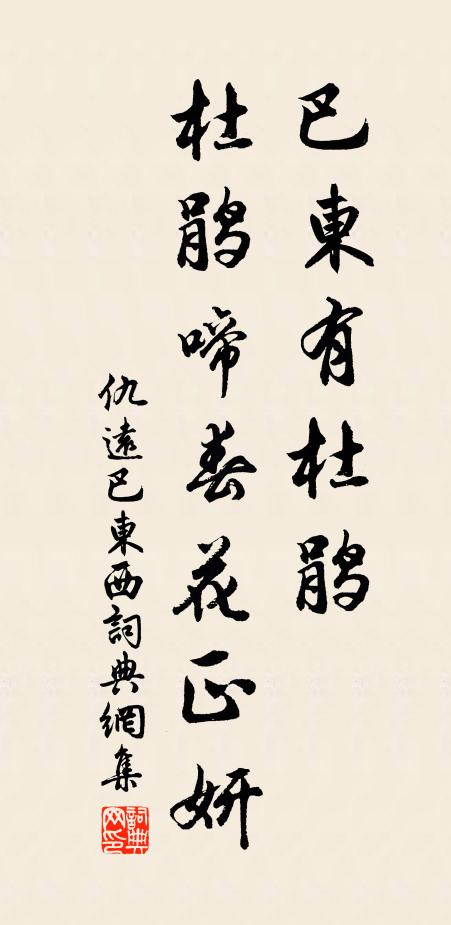 巴東有杜鹃
杜鹃啼春花正妍
仇遠巴東西詞典網集
詞典网印